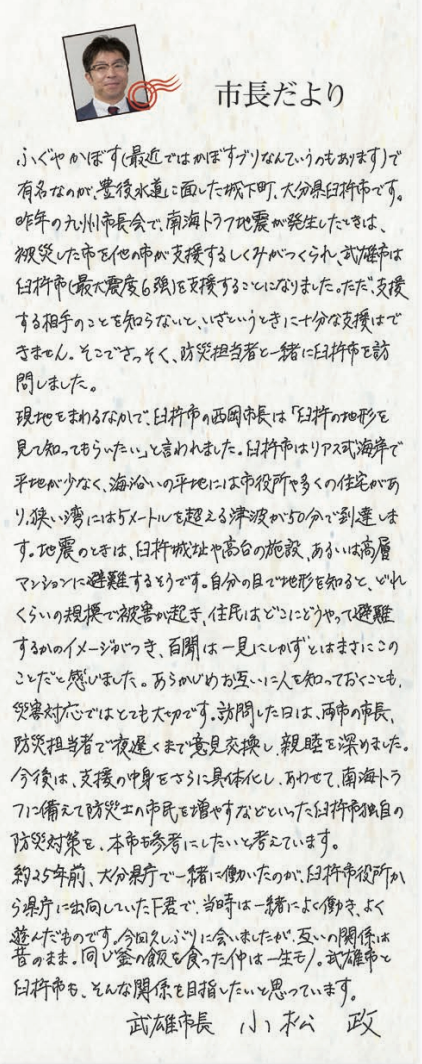 市長だより
ふぐやかぼす(最近ではかぼすブリなんていうのもあります)で
有名なのが、豊後水道に面した城下町、大分県臼杵市です。
昨年の九州市長会で、南海トラフ地震が発生したときは、
被災した市を他の市が支援するしくみがつくられ、武雄市は
臼杵市(最大震度6強)を支援することになりました。ただ、支援
する相手のことを知らないと、いざというときに十分な支援はで
きません。そこでさっそく、防災担当者と一緒に臼杵市を訪
問しました。
現地をまわるなかで、臼杵市の西岡市長は「臼杵の地形を
見て知ってもらいたい」と言われました。臼杵市はリアス式海岸で
平地が少なく、海沿いの平地には市役所や多くの住宅があ
り、狭い湾には5メートルを超える津波が50分で到達しま
す。地震のときは、臼杵城址や高台の施設、あるいは高層
マンションに避難するそうです。自分の目で地形を知ると、どれ
くらいの規模で被害が起き、住民はどこにどうやって避難
するかのイメージがつき、百聞は一見にしかずとはまさにこの
ことだと感じました。あらかじめお互いに人を知っておくことも、
災害対応ではとても大切です。訪問した日は、両市の市長、
防災担当者で夜遅くまで意見交換し、親睦を深めました。
今後は、支援の中身をさらに具体化し、あわせて、南海トラ
フに備えて防災士の市民を増やすなどといった臼杵市独自の
防災対策を、本市も参考にしたいと考えています。
約25年前、大分県庁で一緒に働いたのが、臼杵市役所か
ら県庁に出向していたF君で、当時は一緒によく働き、よく
遊んだものです。今回久しぶりに会いましたが、互いの関係は
昔のまま。同じ釜の飯を食った仲は一生モノ。武雄市と
臼杵市も、そんな関係を目指したいと思っています。
武雄市長 小松 政